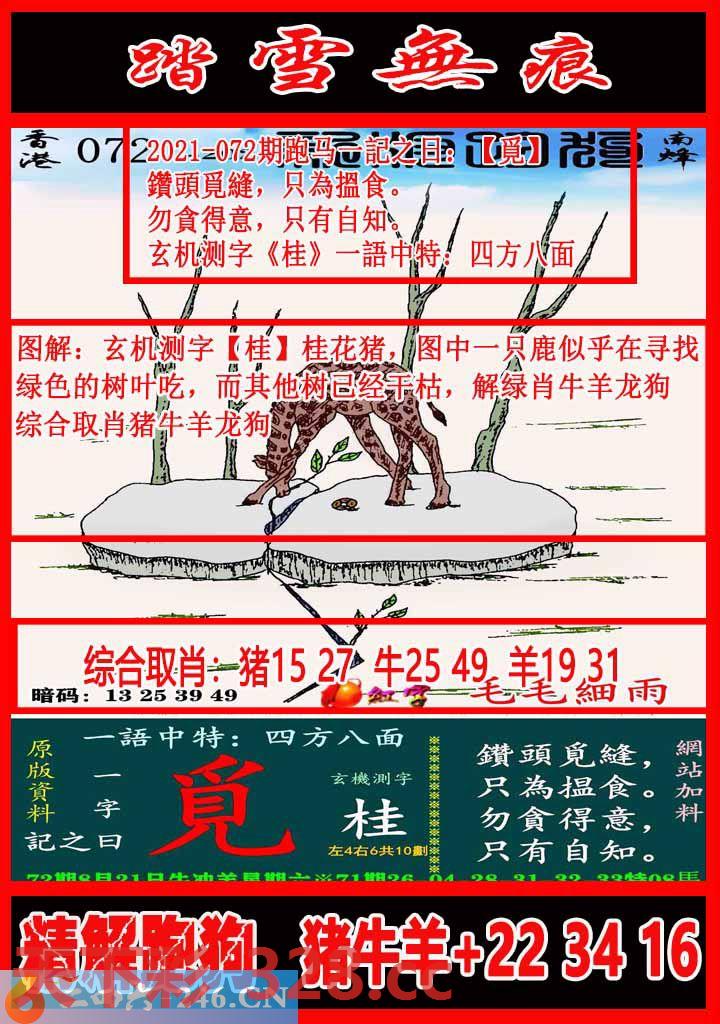 踏雪無痕
香港
072
南烽
2021-072期跑马一記之曰:【覓】
鑽頭覓縫，只為搵食。
勿貪得意，只有自知。
玄机测字《桂》一語中特：四方八面
图解：玄机测字【桂】桂花猪，图中一只鹿似乎在寻找
绿色的树叶吃，而其他树已经干枯，解绿肖牛羊龙狗
综合取肖猪牛羊龙狗
综合取肖：猪15 27 牛25 49 羊19 31
暗码：13 25 39 49
紅字
毛毛細雨
原版資料
一語中特：四方八面
一字
記之曰
覓
玄機測字
桂
左4右6共10劃
鑽頭覓縫，
只為搵食。
勿貪得意，
只有自知。
網站加料
72期8月21日牛冲羊星期六※71期26 04 28 31 32 33特08馬
精解跑狗 猪牛羊+22 34 16
246.CN
328.cc